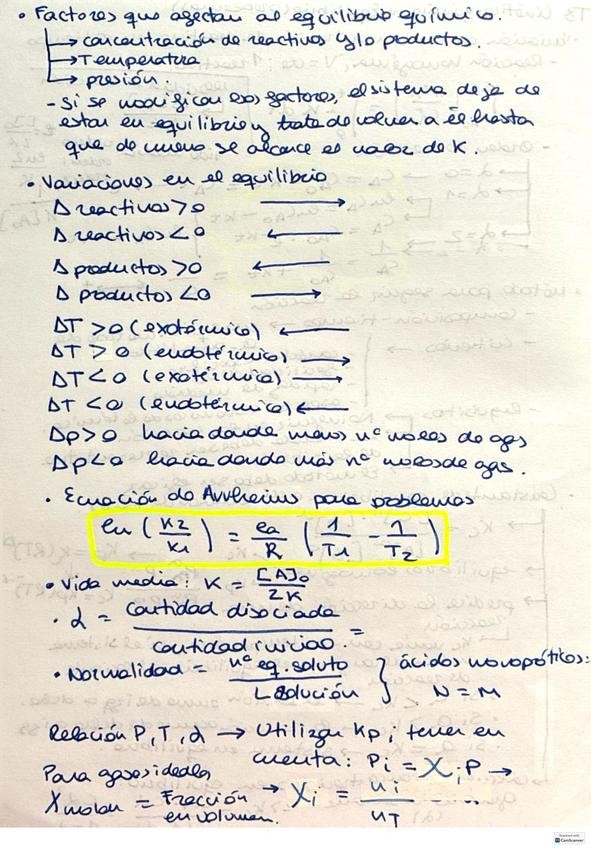 • Factores que afectan al equilibrio químico.
→ concentración de reactivos y/o productos.
→ Temperatura
→ presión.
- Si se modifican esos factores, el sistema deja de
estar en equilibrio y trata de volver a él hasta
que de nuevo se alcance el valor de K.
• Variaciones en el equilibrio
Δ reactivos > 0 →
Δ reactivos < 0 ←
Δ productos > 0 ←
Δ productos < 0 →
ΔT > 0 (exotérmico) ←
ΔT > 0 (endotérmico) →
ΔT < 0 (exotérmico) →
ΔT < 0 (endotérmico) ←
Δp > 0 hacia donde menos nº moles de gas
Δp < 0 hacia donde más nº moles de gas.
• Ecuación de Arrhenius para problemas
ln (K2/K1) = ea/R (1/T1 - 1/T2)
• Vida media: K = [A]₀/2K
• α = cantidad disociada / cantidad inicial =
• Normalidad = nº eq. soluto / L solución } ácidos monopróticos: N = M
Relación P, T, α → Utilizar Kp; tener en
cuenta: Pi = Xi P →
Para gases ideales
X molar = Fracción en volumen. → Xi = ni/nT ...
Scanned with
CamScanner